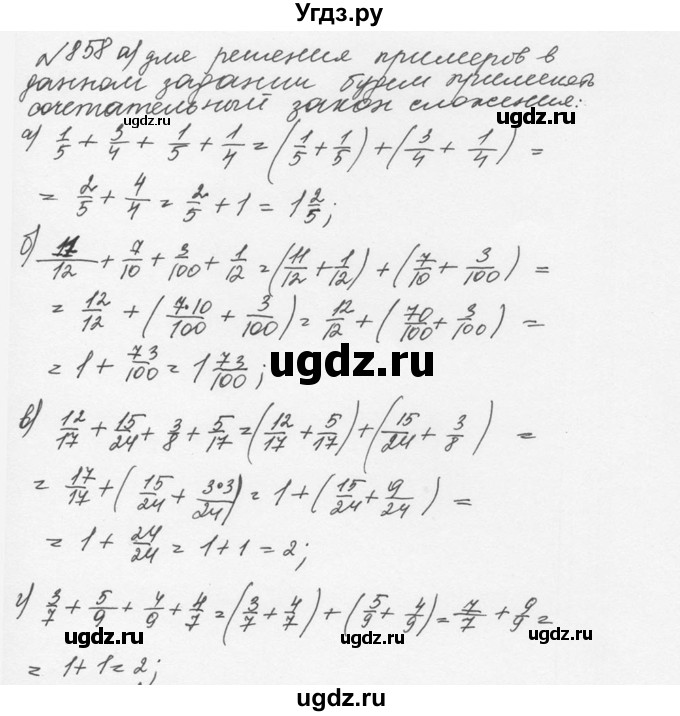 Угдз.ру
№858 а) для решения примеров в
данном задании будем применять
сочетательный закон сложения:
ugdz.ru ugdz.ru
а) 1/5 + 3/4 + 1/5 + 1/4 = (1/5 + 1/5) + (3/4 + 1/4) =
= 2/5 + 4/4 = 2/5 + 1 = 1 2/5;
ugdz.ru ugdz.ru
б) 11/12 + 7/10 + 3/100 + 1/12 = (11/12 + 1/12) + (7/10 + 3/100) =
= 12/12 + (7·10/100 + 3/100) = 12/12 + (70/100 + 3/100) =
= 1 + 73/100 = 1 73/100;
ugdz.ru
в) 12/17 + 15/24 + 3/8 + 5/17 = (12/17 + 5/17) + (15/24 + 3/8) =
ugdz.ru ugdz.ru
= 17/17 + (15/24 + 3·3/24) = 1 + (15/24 + 9/24) =
= 1 + 24/24 = 1 + 1 = 2;
г) 3/7 + 5/9 + 4/9 + 4/7 = (3/7 + 4/7) + (5/9 + 4/9) = 7/7 + 9/9 =
ugdz.ru ugdz.ru
= 1 + 1 = 2;
ugdz.ru